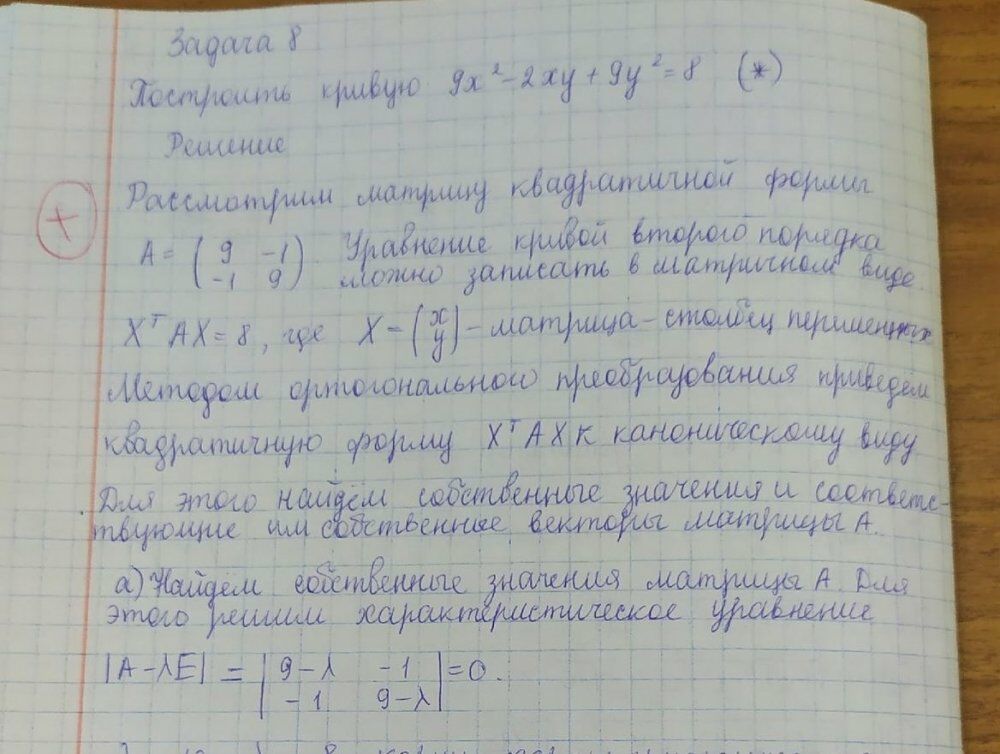 Задача 8
Построить кривую 9x² - 2xy + 9y² = 8 (*)
Решение
Рассмотрим матрицу квадратичной формы
A = ( 9 -1 ) Уравнение кривой второго порядка
( -1 9 ) можно записать в матричном виде
XᵀAX = 8, где X = (x y) - матрица - столбец переменных
Методом ортогонального преобразования приведём
квадратичную форму XᵀAX к каноническому виду
Для этого найдём собственные значения и соответс-
твующие им собственные векторы матрицы A.
а) Найдём собственные значения матрицы A. Для
этого решим характеристическое уравнение
|A - λE| = | 9-λ -1 | = 0.
| -1 9-λ |